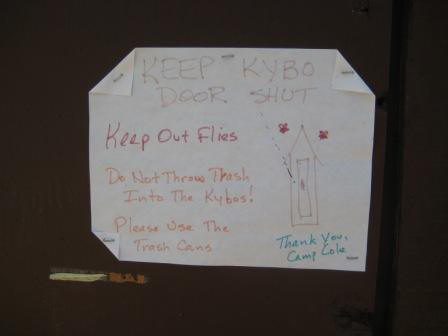 KEEP KYBO
DOOR SHUT
Keep Out Flies
Do Not Throw Trash
Into The Kybos!
Please Use The
Trash Cans
Thank You,
Camp Cole